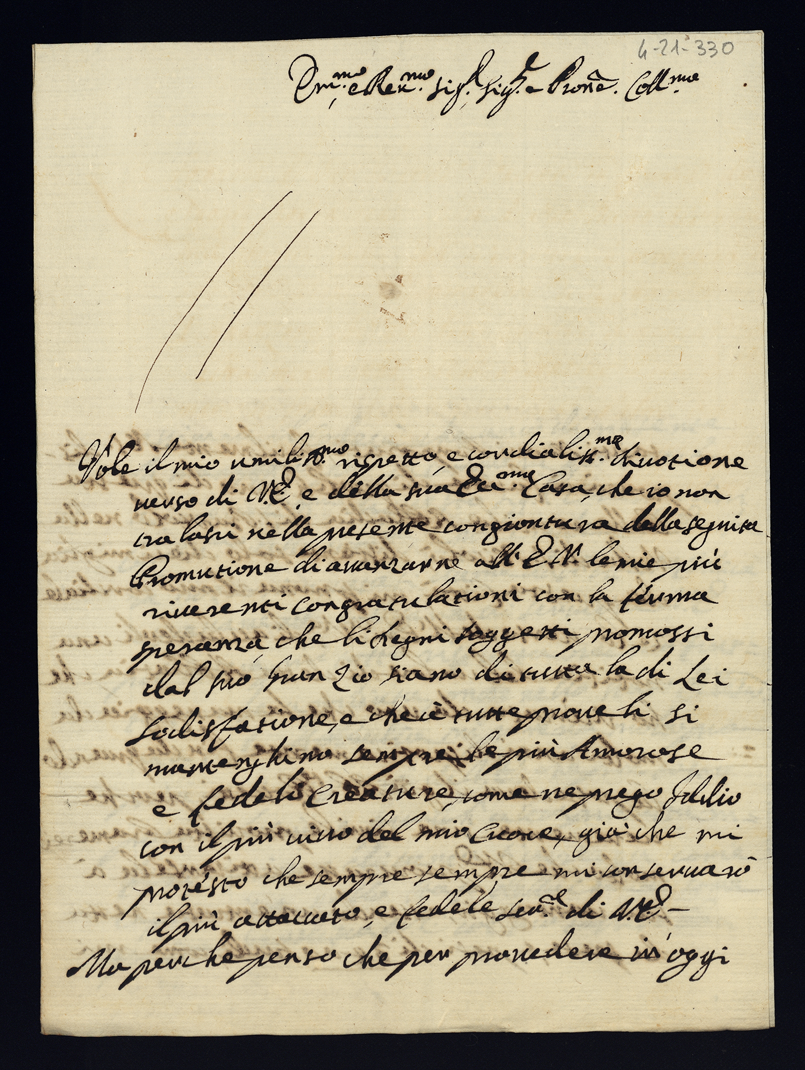 4-21-330
Em.mo e Rev.mo Sig.r Sig.r e Pron.e Coll.mo
Vole il mio umiliss.mo rispetto, e cordialiss.ma divotione
verso di V.E., e della sua Ecc.ma Casa, che io non
tralasci nella presente congiontura della seguita
Promotione di avanzarne all'E.V. le mie più
riverenti congratulationi con la ferma
speranza, che li degni soggetti promossi
dal suo siano di tutta la di Lei
sodisfatione, e che à tutte prove li si
mantenghino sempre le più Amorose
e fedeli Creature, come ne prego Iddio
con il più vivo del mio Cuore, già che mi
protesto che sempre sempre mi conservarò
il più attaccato, e fedele Ser.e di V.E.-
Ma perche penso che per provedere in oggi